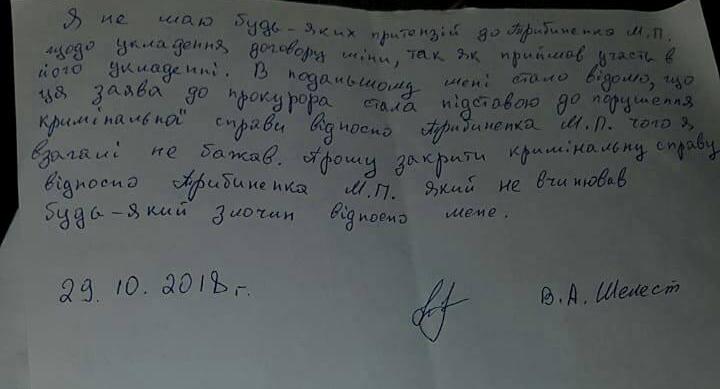 Я не маю будь-яких притензій до Арибиненка М.П.
щодо укладення договору міни, так як приймав участь в
його укладенні. В подальшому мені стало відомо, що
ця заява до прокурора стала підставою до порушення
кримінальної справи відносно Арибиненка М.П. чого я
взагалі не бажав. Прошу закрити кримінальну справу
відносно Арибиненка М.П. який не вчинював
будь-який злочин відносно мене.
29.10.2018 г.
В.А. Шелест